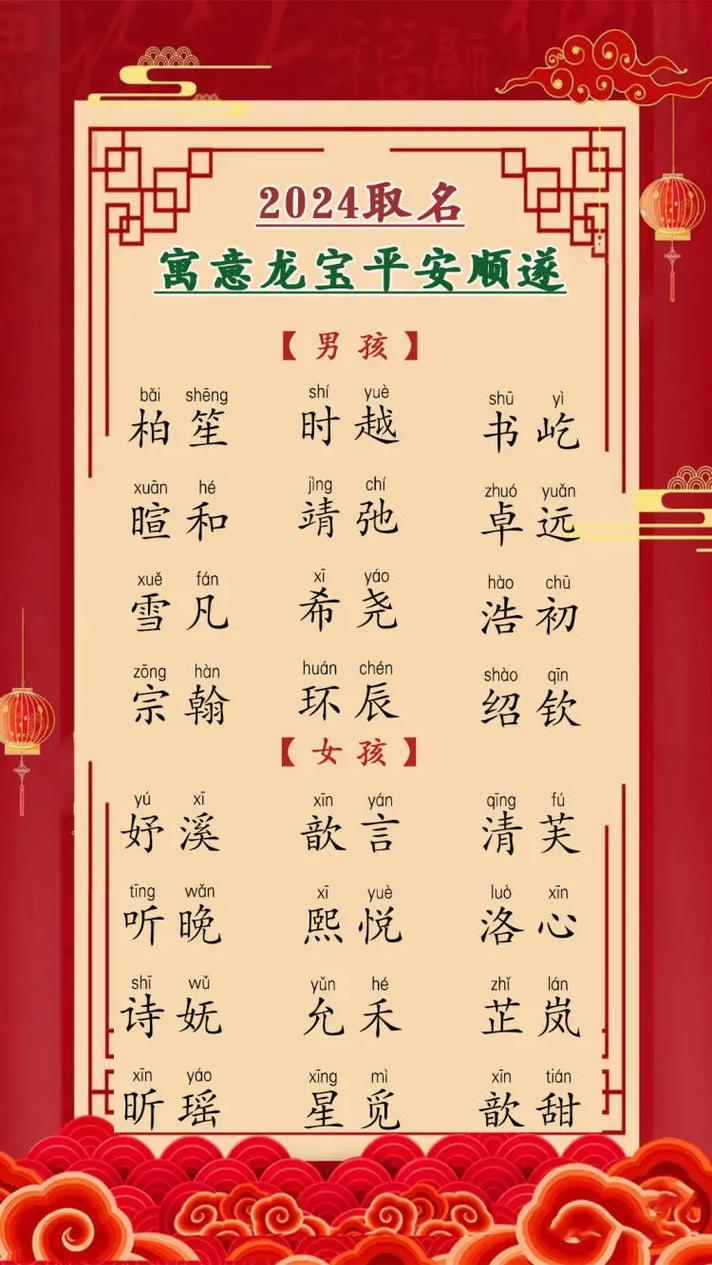 2024取名
寓意龙宝平安顺遂
【男孩】
bǎi shēng shí yuè shū yì
柏笙 时越 书屹
xuān hé jìng chí zhuó yuǎn
暄和 靖弛 卓远
xuě fán xī yáo hào chū
雪凡 希尧 浩初
zōng hàn huán chén shào qīn
宗翰 环辰 绍钦
【女孩】
yú xī xīn yán qīng fú
妤溪 歆言 清芙
tīng wǎn xī yuè luò xīn
听晚 熙悦 洛心
shī wǔ yǔn hé zhǐ lán
诗妩 允禾 芷岚
xīn yáo xīng mì xīn tián
昕瑶 星觅 歆甜